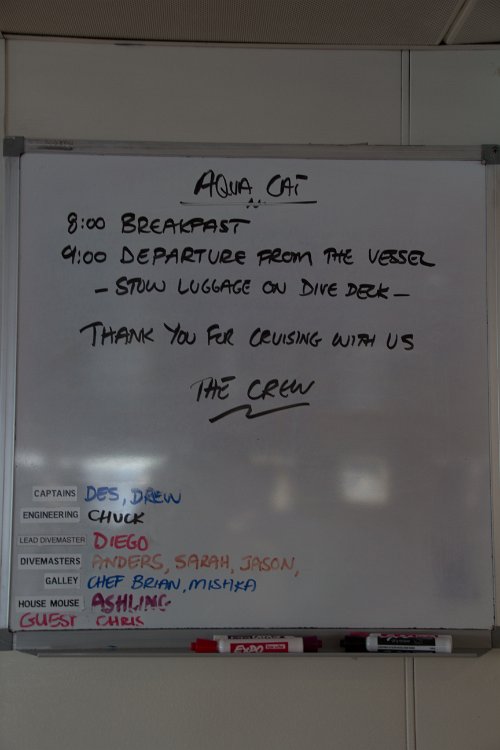 AQUA CAT
8:00 BREAKFAST
9:00 DEPARTURE FROM THE VESSEL
- STOW LUGGAGE ON DIVE DECK -
THANK YOU FOR CRUISING WITH US
THE CREW
CAPTAINS DES, DREW
ENGINEERING CHUCK
LEAD DIVEMASTER DIEGO
DIVEMASTERS ANDERS, SARAH, JASON,
GALLEY CHEF BRIAN, MISHKA
HOUSE MOUSE ASHLING
GUEST CHRIS
EXPO